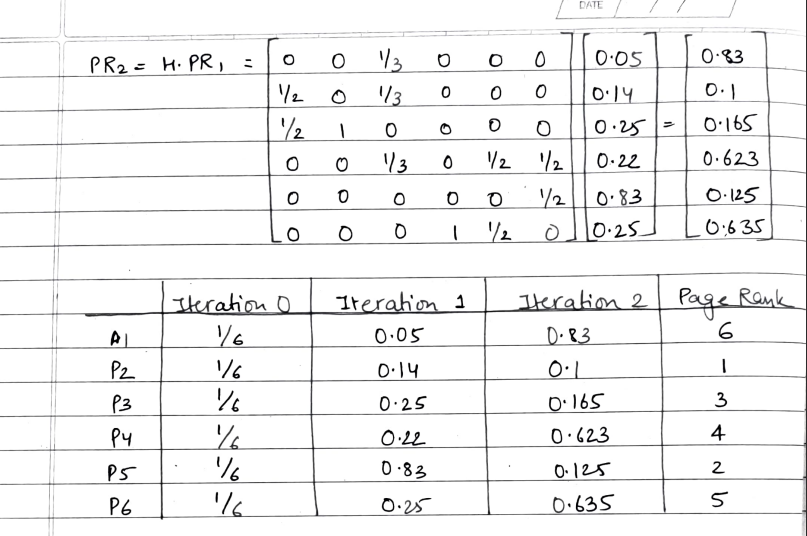 DATE
PR2 = H.PR1 = [0 0 1/3 0 0 0] [0.05] [0.83]
1/2 0 1/3 0 0 0 0.14 0.1
1/2 1 0 0 0 0 0.25 = 0.165
0 0 1/3 0 1/2 1/2 0.22 0.623
0 0 0 0 0 1/2 0.83 0.125
0 0 0 1 1/2 0 0.25 0.635
Iteration 0 Iteration 1 Iteration 2 Page Rank
A1 1/6 0.05 0.83 6
P2 1/6 0.14 0.1 1
P3 1/6 0.25 0.165 3
P4 1/6 0.22 0.623 4
P5 1/6 0.83 0.125 2
P6 1/6 0.25 0.635 5